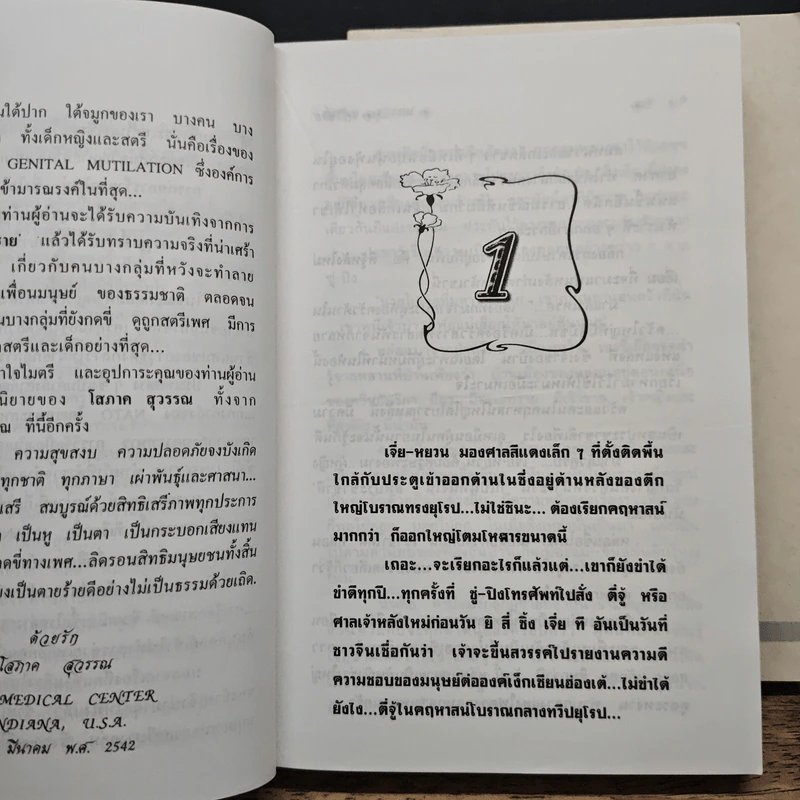 นใต้ปาก ใต้จมูกของเรา บางคน บาง
ทั้งเด็กหญิงและสตรี นั่นคือเรื่องของ
GENITAL MUTILATION ซึ่งองค์การ
ข้ามารณรงค์ในที่สุด...
ท่านผู้อ่านจะได้รับความบันเทิงจากการ
ราย' แล้วได้รับทราบความจริงที่น่าเศร้า
เกี่ยวกับคนบางกลุ่มที่หวังจะทำลาย
เพื่อนมนุษย์ ของธรรมชาติ ตลอดจน
นบางกลุ่มที่ยังกดขี่ ดูถูกสตรีเพศ มีการ
สตรีและเด็กอย่างที่สุด...
ำใจไมตรี และอุปการะคุณของท่านผู้อ่าน
นิยายของ โสภาค สุวรรณ ทั้งจาก
ณ ที่นี้อีกครั้ง
ความสุขสงบ ความปลอดภัยจงบังเกิด
ทุกชาติ ทุกภาษา เผ่าพันธุ์และศาสนา...
เสรี สมบูรณ์ด้วยสิทธิเสรีภาพทุกประการ
เป็นหู เป็นตา เป็นกระบอกเสียงแทน
ดขี่ทางเพศ...ลิดรอนสิทธิมนุษยชนทั้งสิ้น
งเป็นตายร้ายดีอย่างไม่เป็นธรรมด้วยเถิด.
ด้วยรัก
โสภาค สุวรรณ
MEDICAL CENTER
NDIANA, U.S.A.
มีนาคม พ.ศ. 2542
1
เจี่ย-หยวน มองศาลสีแดงเล็ก ๆ ที่ตั้งติดพื้น
ใกล้กับประตูเข้าออกด้านในซึ่งอยู่ด้านหลังของตึก
ใหญ่โบราณทรงยุโรป...ไม่ใช่ซินะ... ต้องเรียกคฤหาสน์
มากกว่า ก็ออกใหญ่โตมโหฬารขนาดนี้
เถอะ...จะเรียกอะไรก็แล้วแต่...เขาก็ยังขำได้
ขำดีทุกปี...ทุกครั้งที่ ชู่-ปิงโทรศัพท์ไปสั่ง ตี่จู้ หรือ
ศาลเจ้าหลังใหม่ก่อนวัน ยิ สี่ ซิ้ง เจี่ย ที อันเป็นวันที่
ชาวจีนเชื่อกันว่า เจ้าจะขึ้นสวรรค์ไปรายงานความดี
ความชอบของมนุษย์ต่อองค์เง็กเซียนฮ่องเต้...ไม่ขำได้
ยังไง...ตี่จู้ในคฤหาสน์โบราณกลางทวีปยุโรป...